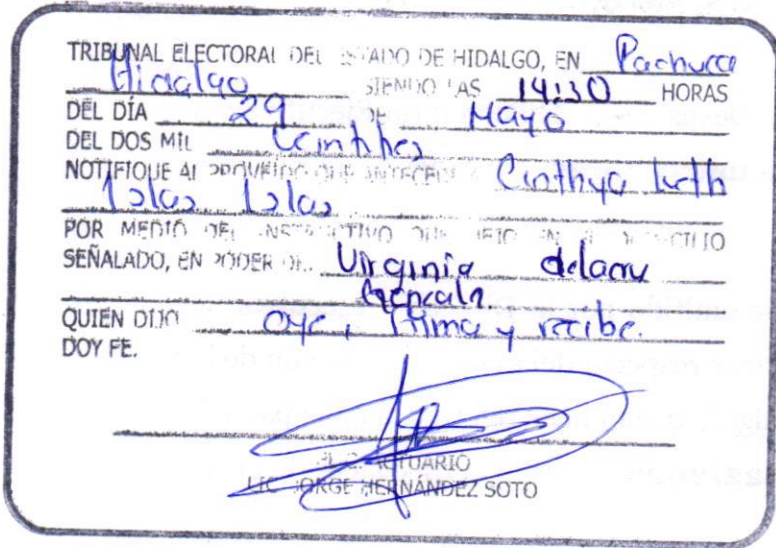 TRIBUNAL ELECTORAL DEL ESTADO DE HIDALGO, EN Pachuca
Hidalgo SIENDO LAS 14:30 HORAS
DEL DÍA 29 DE Mayo
DEL DOS MIL
NOTIFIQUE AL PROVEIDO QUE ANTECEDE A Cinthya
Islas Islas
POR MEDIO DEL INSTRUCTIVO QUE DEJO EN EL DOMICILIO
SEÑALADO, EN PODER DE Virginia
QUIEN DIJO oye, firma y recibe.
DOY FE.
EL C. ACTUARIO
LIC. JORGE HERNÁNDEZ SOTO